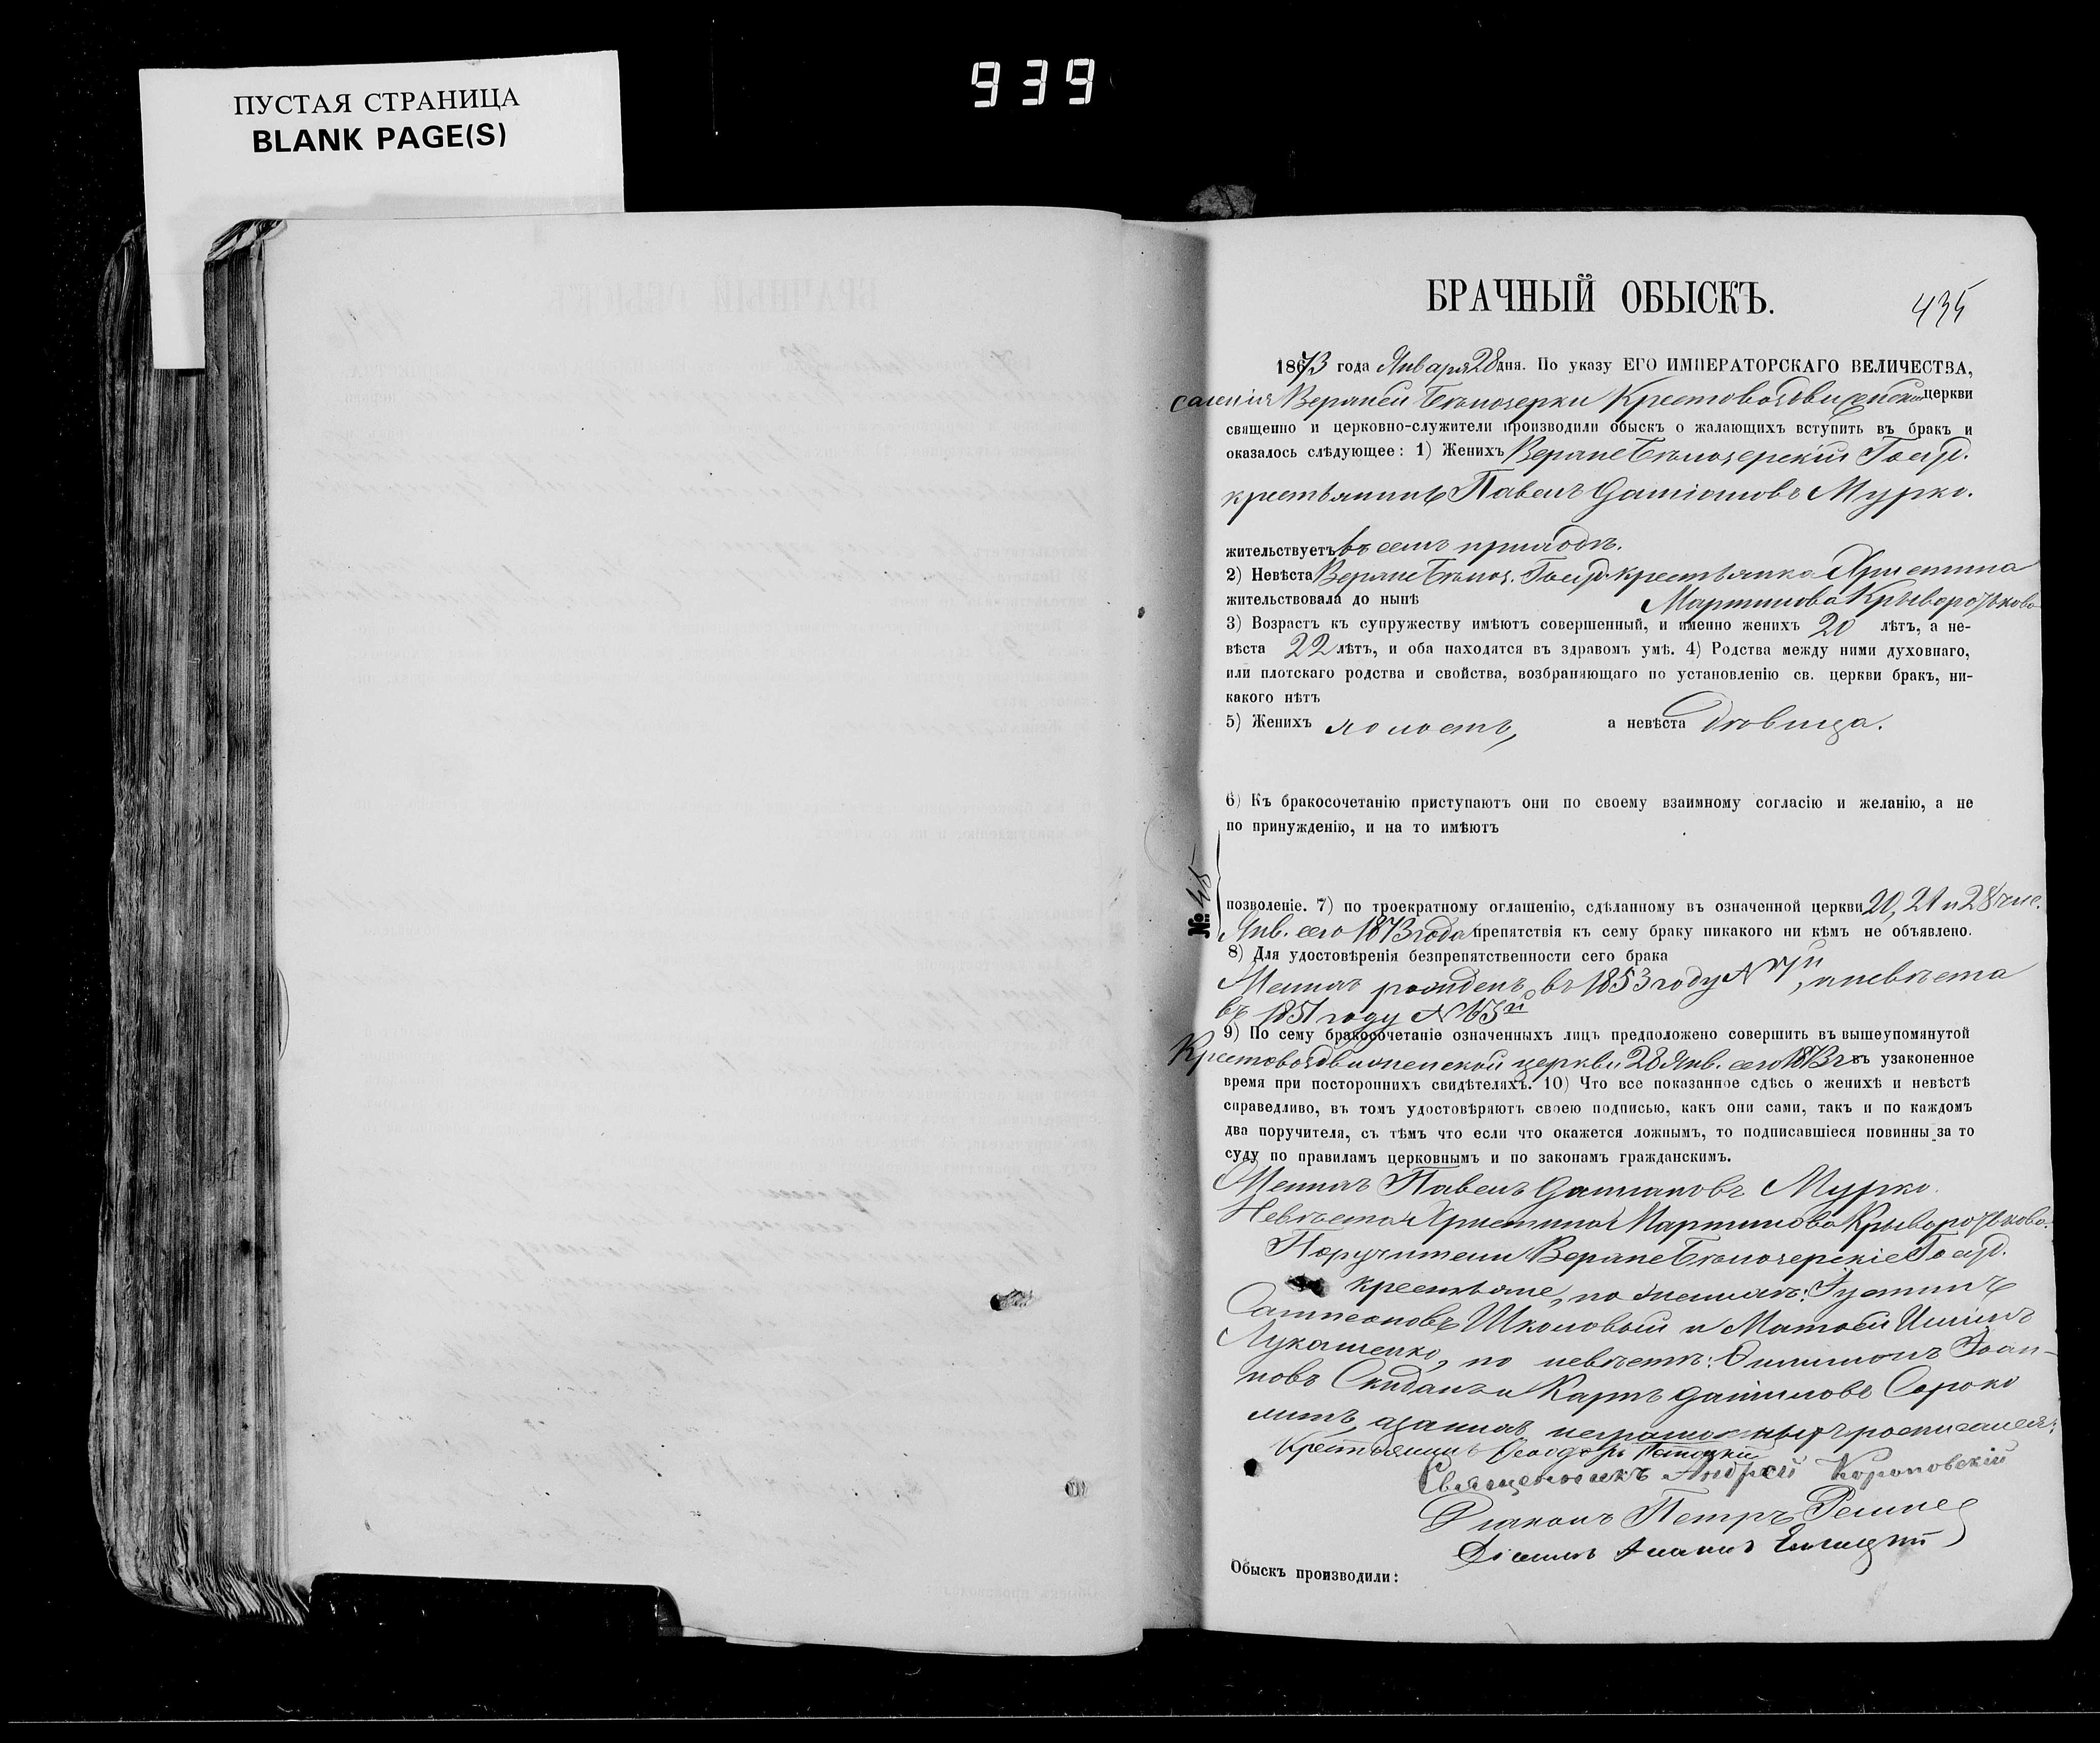 ПУСТАЯ СТРАНИЦА
BLANK PAGE(S)
939
БРАЧНЫЙ ОБЫСКЪ.
435
1873 года Января 28 дня. По указу ЕГО ИМПЕРАТОРСКАГО ВЕЛИЧЕСТВА,
селенія Верхней Бѣлозерки Крестовоздвиженской церкви
священно и церковно-служители производили обыскъ о жалающихъ вступить въ бракъ и
оказалось слѣдующее: 1) Женихъ Верхнебѣлозерскій Госуд.
крестьянинъ Павелъ Даміановъ Мурко.
жительствуетъ въ семъ приходѣ.
2) Невѣста Верхнебѣлоз. Госуд. крестьянка Христина
жительствовала до нынѣ Мартинова Крыворотькова
3) Возрастъ къ супружеству имѣютъ совершенный, и именно женихъ 20 лѣтъ, а не-
вѣста 22 лѣтъ, и оба находятся въ здравомъ умѣ. 4) Родства между ними духовнаго,
или плотскаго родства и свойства, возбраняющаго по установленію св. церкви бракъ, ни-
какого нѣтъ
5) Женихъ холостъ, а невѣста дѣвица.
6) Къ бракосочетанію приступаютъ они по своему взаимному согласію и желанію, а не
по принужденію, и на то имѣютъ
№ 45
позволеніе. 7) по троекратному оглашенію, сдѣланному въ означенной церкви 20, 21 и 28 чис.
Янв. сего 1873 года препятствія къ сему браку никакого ни кѣмъ не объявлено.
8) Для удостовѣренія безпрепятственности сего брака
Женихъ рожденъ въ 1853 году №, а невѣста
въ 1851 году №
9) По сему бракосочетаніе означенныхъ лицъ предположено совершить въ вышеупомянутой
Крестовоздвиженской церкви 28 Янв. сего 1873 г. въ узаконенное
время при постороннихъ свидѣтеляхъ. 10) Что все показанное сдѣсь о женихѣ и невѣстѣ
справедливо, въ томъ удостовѣряютъ своею подписью, какъ они сами, такъ и по каждомъ
два поручителя, съ тѣмъ что если что окажется ложнымъ, то подписавшіеся повинны за то
суду по правиламъ церковнымъ и по законамъ гражданскимъ.
Женихъ Павелъ Даміановъ Мурко.
Невѣста Христина Мартинова Крыворотькова.
Поручители Верхнебѣлозерскіе Госуд.
крестьяне, по женихѣ: Іустинъ
Сампсоновъ Школовый и Матѳей
Лукашенко, по невѣстѣ: Филимонъ Іоан-
новъ Скиданъ и Карпъ Даніиловъ Сороко
литъ, а за нихъ неграмотныхъ росписался:
Крестьянинъ Ѳеодоръ
Священникъ Андрей Короповскій
Діаконъ Петръ
Обыскъ производили: